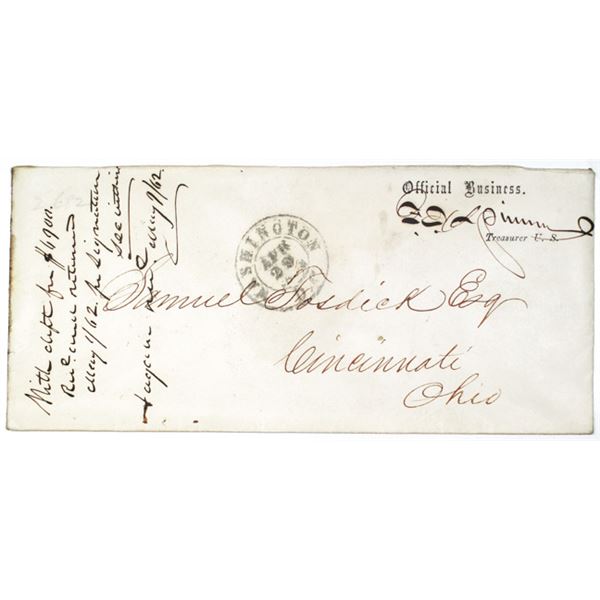 Official Business.
Treasurer U. S.
WASHINGTON
APR
29
Samuel Fosdick Esq
Cincinnati
Ohio
With dft for $6900.
Recd and returned
May 1/62. for Signature
See within
& again recd May 9/62